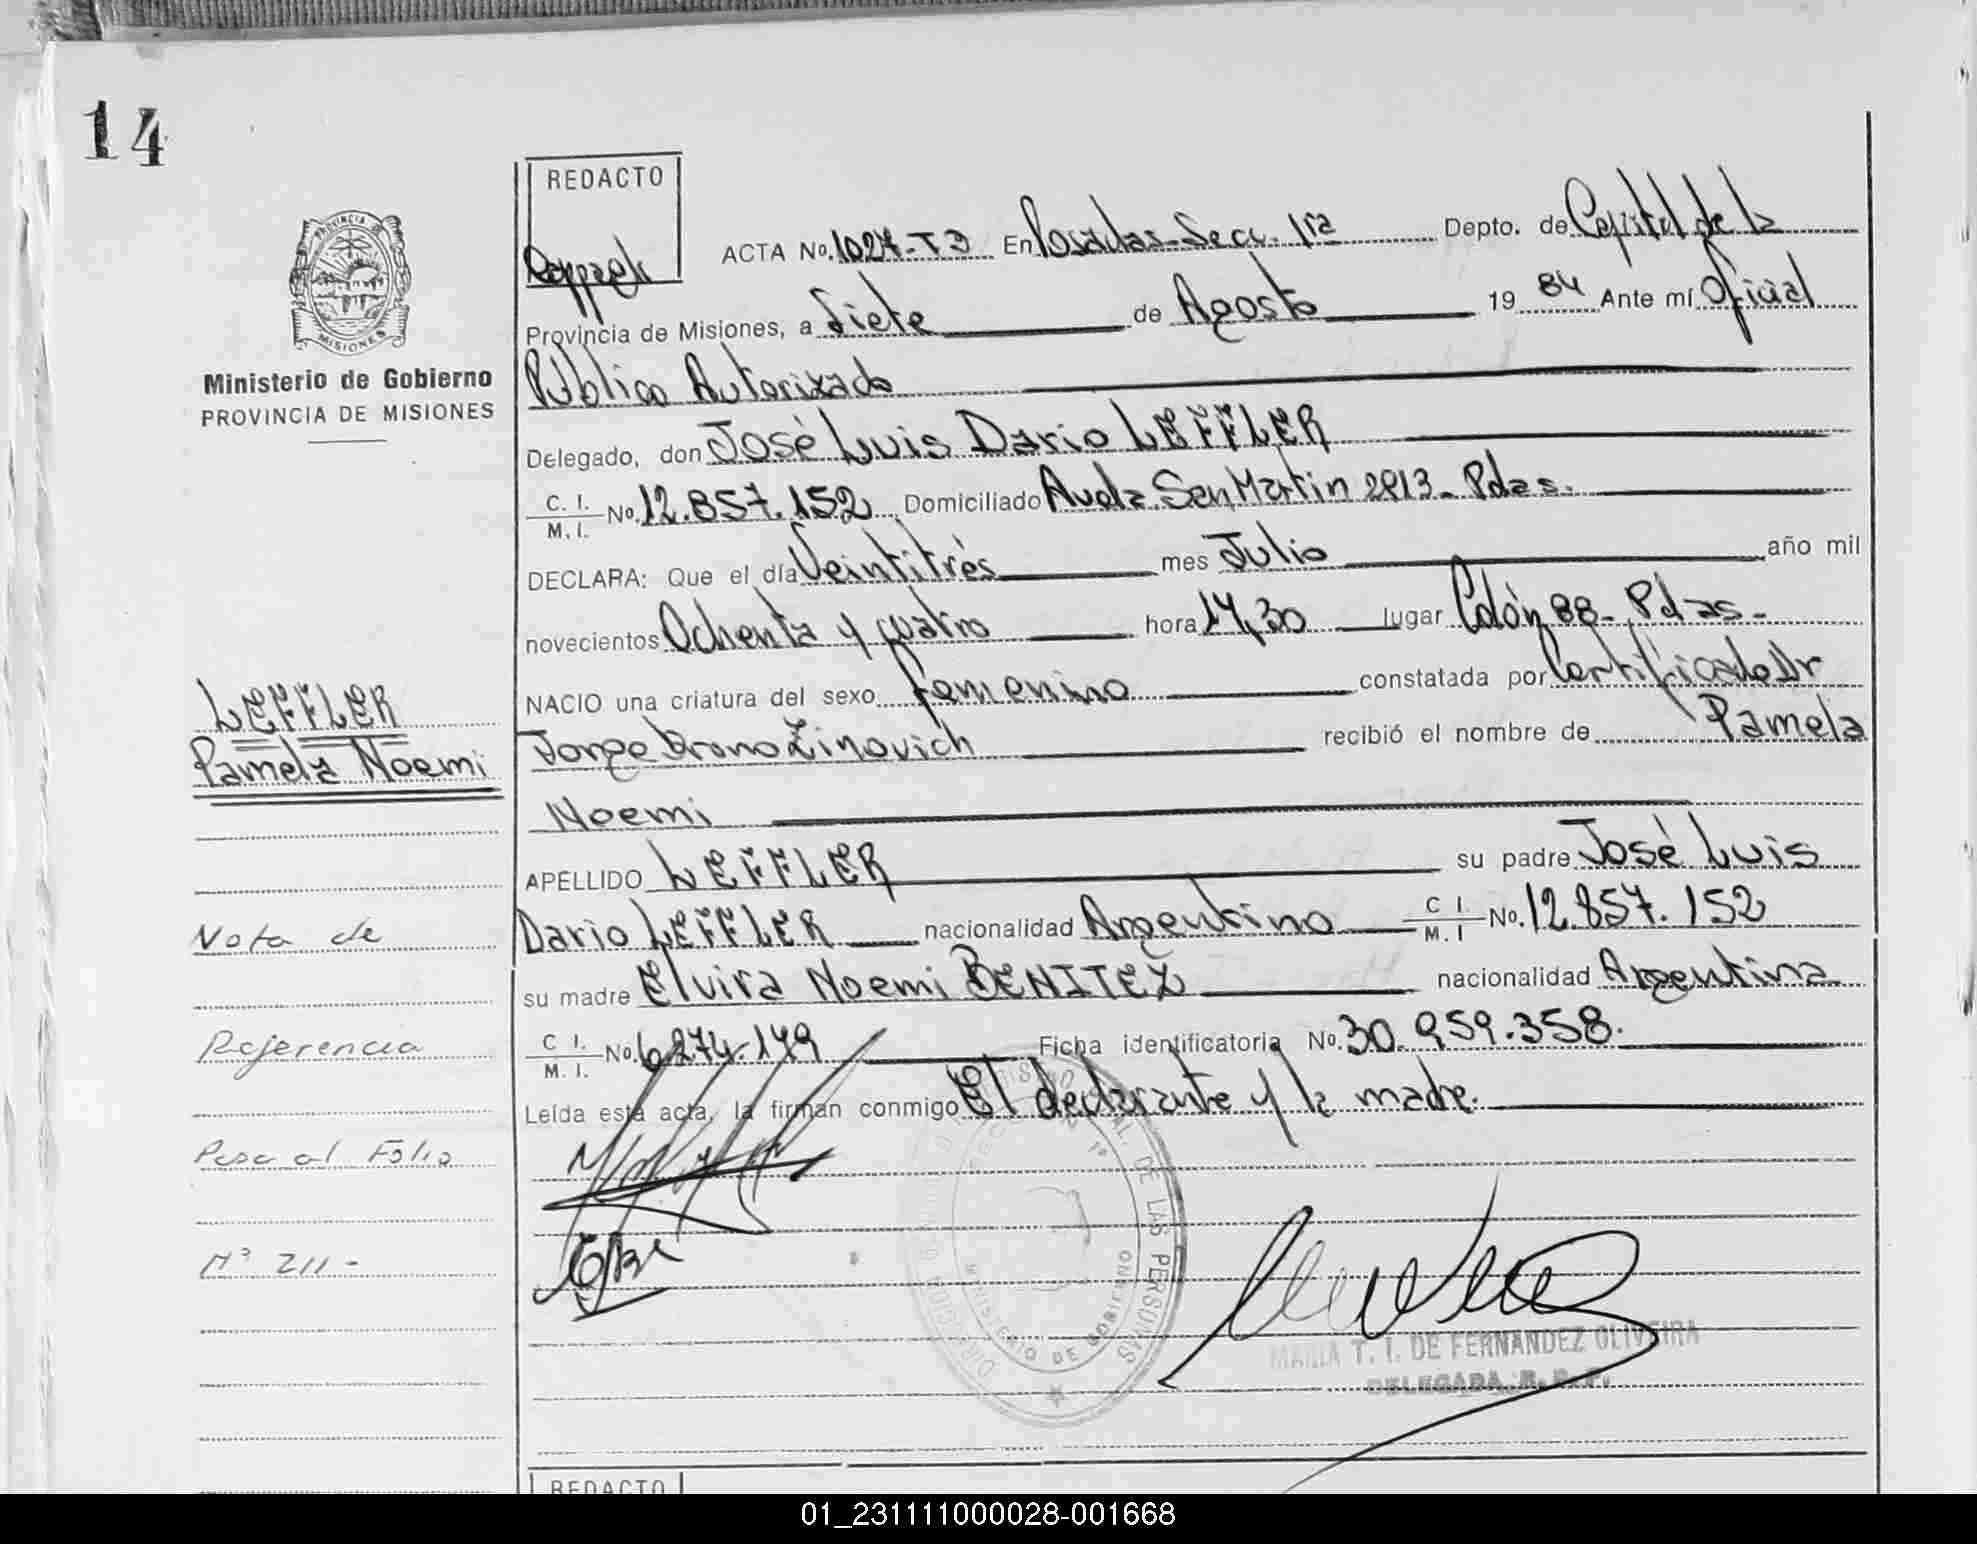 14
REDACTO
ACTA No. 1027-T3 En Posadas-Secc. 1ra Depto. de Capital de la
Provincia de Misiones, a Siete de Agosto 1984 Ante mí Oficial
Público Autorizado
Delegado, don José Luis Dario LEFFLER
C. I. / M. I. No. 12.857.152 Domiciliado Avda San Martin 2913- Pdas.
DECLARA: Que el día Veintitrés mes Julio año mil
novecientos Ochenta y cuatro hora 17,30 lugar Colón 88- Pdas-
NACIO una criatura del sexo femenino constatada por Certificado Dr
Jorge Bruno Zinovich recibió el nombre de Pamela
Noemi
APELLIDO LEFFLER su padre José Luis
Dario LEFFLER nacionalidad Argentino C I. / M. I No. 12.857.152
su madre Elvira Noemi BENITEZ nacionalidad Argentina
C I. / M. I. No. 6274.149 Ficha identificatoria No. 30.959.358.
Leída está acta, la firman conmigo El declarante y la madre.
PROVINCIA DE
MISIONES
Ministerio de Gobierno
PROVINCIA DE MISIONES
LEFFLER
Pamela Noemi
Nota de
Referencia
Pasa al Folio
Nº 211-
DE LAS PERSONAS
MINISTERIO DE GOBIERNO
MARIA T. I. DE FERNANDEZ OLIVEIRA
DELEGADA R. P. P.
REDACTO
01_231111000028-001668